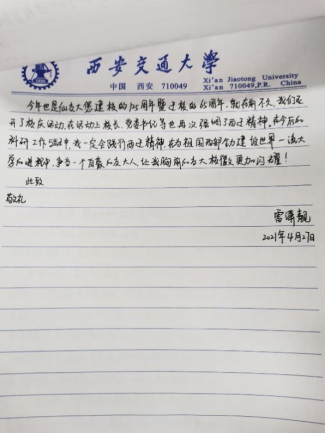 西安交通大学
中国 西安 710049
Xi'an Jiaotong University
Xi'an 710049,P.R. China
今年也是仙交大您建校的125周年暨迁校的65周年,就在前不久,我们召
开了校庆活动,在活动上校长、党委书记等也再次强调了西迁精神,在今后的
科研工作当中我一定会践行西迁精神,在为祖国西部创建世界一流大
学的进程中,争当一个百分交大人,让我胸前的交大校徽更加闪耀!
此致
敬礼
2021年4月27日